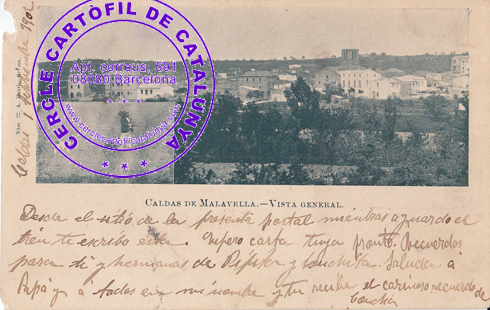 CERCLE CARTÒFIL DE CATALUNYA
Apt. correus, 891
08080 Barcelona
* * *
www.cerclecartofilcatalunya.com
* * *
CALDAS DE MALAVELLA.—VISTA GENERAL.
Desde el sitio de la presente postal mientras aguardo el
tren te escribo esta. Espero carta tuya pronto. Recuerdos
para ti y hermanas de Pepita y Conchita. Saluda á
Papá y á todos en mi nombre y tu recibe el cariñoso recuerdo de